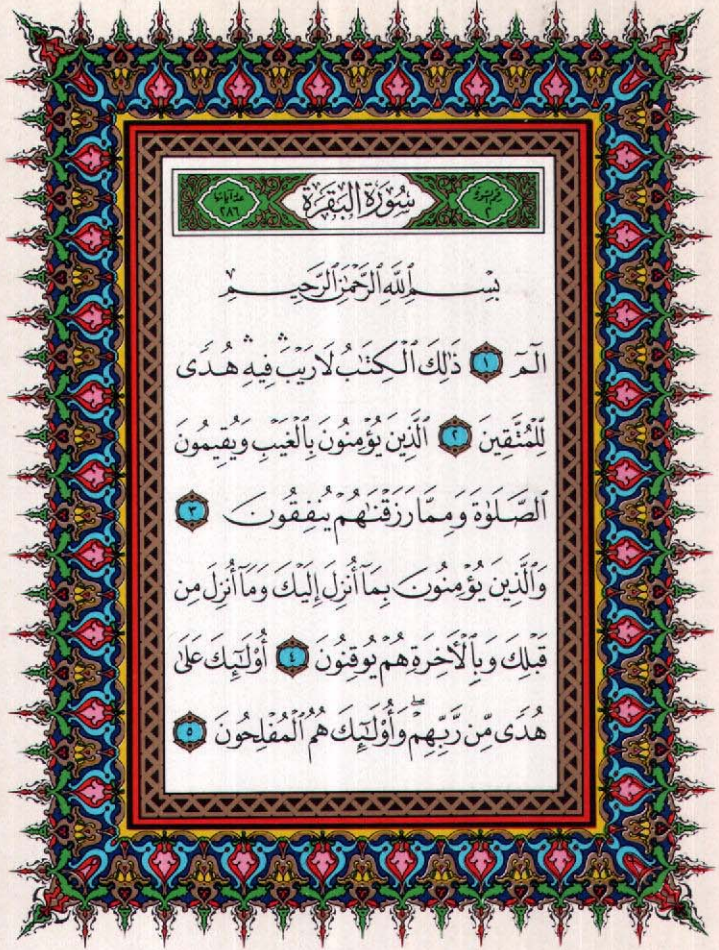 رقم السورة ٢
سُورَةُ البَقَرَةِ
عدد آياتها ٢٨٦
بِسْمِ ٱللَّهِ ٱلرَّحْمَٰنِ ٱلرَّحِيمِ
الٓمٓ ١ ذَٰلِكَ ٱلْكِتَٰبُ لَا رَيْبَ ۛ فِيهِ ۛ هُدًى
لِّلْمُتَّقِينَ ٢ ٱلَّذِينَ يُؤْمِنُونَ بِٱلْغَيْبِ وَيُقِيمُونَ
ٱلصَّلَوٰةَ وَمِمَّا رَزَقْنَٰهُمْ يُنفِقُونَ ٣
وَٱلَّذِينَ يُؤْمِنُونَ بِمَآ أُنزِلَ إِلَيْكَ وَمَآ أُنزِلَ مِن
قَبْلِكَ وَبِٱلْأَخِرَةِ هُمْ يُوقِنُونَ ٤ أُو۟لَٰٓئِكَ عَلَىٰ
هُدًى مِّن رَّبِّهِمْ ۖ وَأُو۟لَٰٓئِكَ هُمُ ٱلْمُفْلِحُونَ ٥